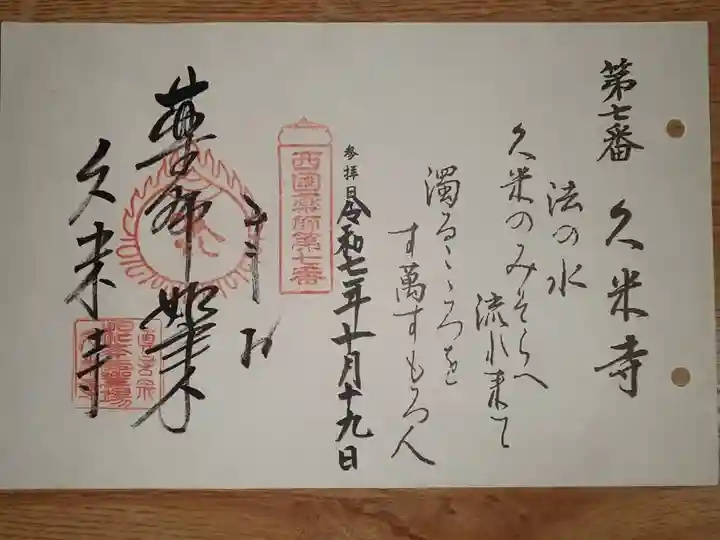 第七番 久米寺
法の水
久米のみそらへ
流れ来て
濁るこゝろを
す萬すもろ人
参拝日 令和七年十月十九日
西國薬師第七番
薬師如来
久米寺